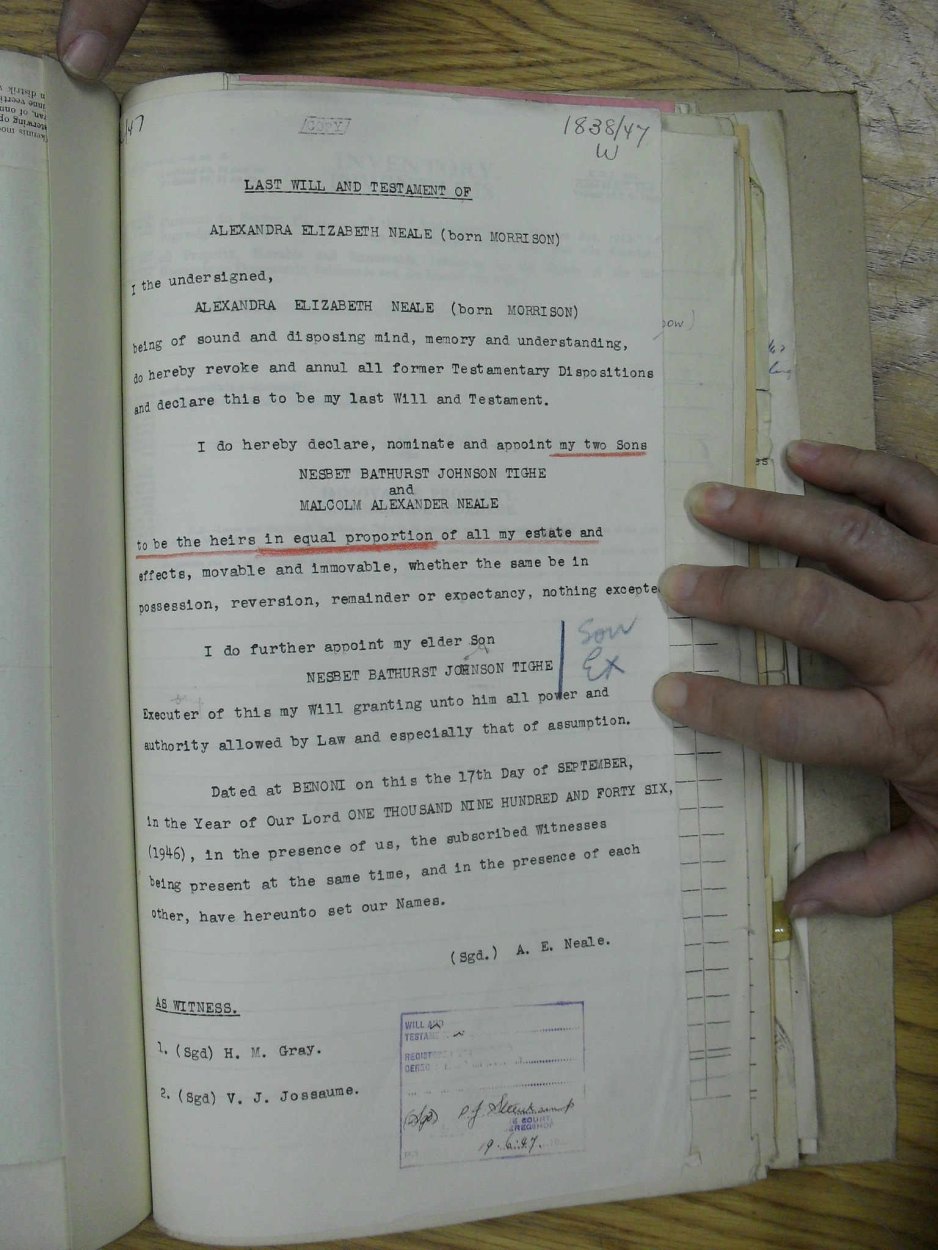 /47
COPY
1838/47
W
LAST WILL AND TESTAMENT OF
ALEXANDRA ELIZABETH NEALE (born MORRISON)
I the undersigned,
ALEXANDRA ELIZABETH NEALE (born MORRISON)
being of sound and disposing mind, memory and understanding,
do hereby revoke and annul all former Testamentary Dispositions
and declare this to be my last Will and Testament.
I do hereby declare, nominate and appoint my two Sons
NESBET BATHURST JOHNSON TIGHE
and
MALCOLM ALEXANDER NEALE
to be the heirs in equal proportion of all my estate and
effects, movable and immovable, whether the same be in
possession, reversion, remainder or expectancy, nothing excepte
I do further appoint my elder Son
NESBET BATHURST JOHNSON TIGHE
Son
Ex
Executer of this my Will granting unto him all power and
authority allowed by Law and especially that of assumption.
Dated at BENONI on this the 17th Day of SEPTEMBER,
in the Year of Our Lord ONE THOUSAND NINE HUNDRED AND FORTY SIX,
(1946), in the presence of us, the subscribed Witnesses
being present at the same time, and in the presence of each
other, have hereunto set our Names.
(Sgd.) A. E. Neale.
AS WITNESS.
1. (Sgd) H. M. Gray.
2. (Sgd) V. J. Jossaume.
WILL AND
TESTAM
REGISTERED
(Sgd)
COURT
19.6.47.